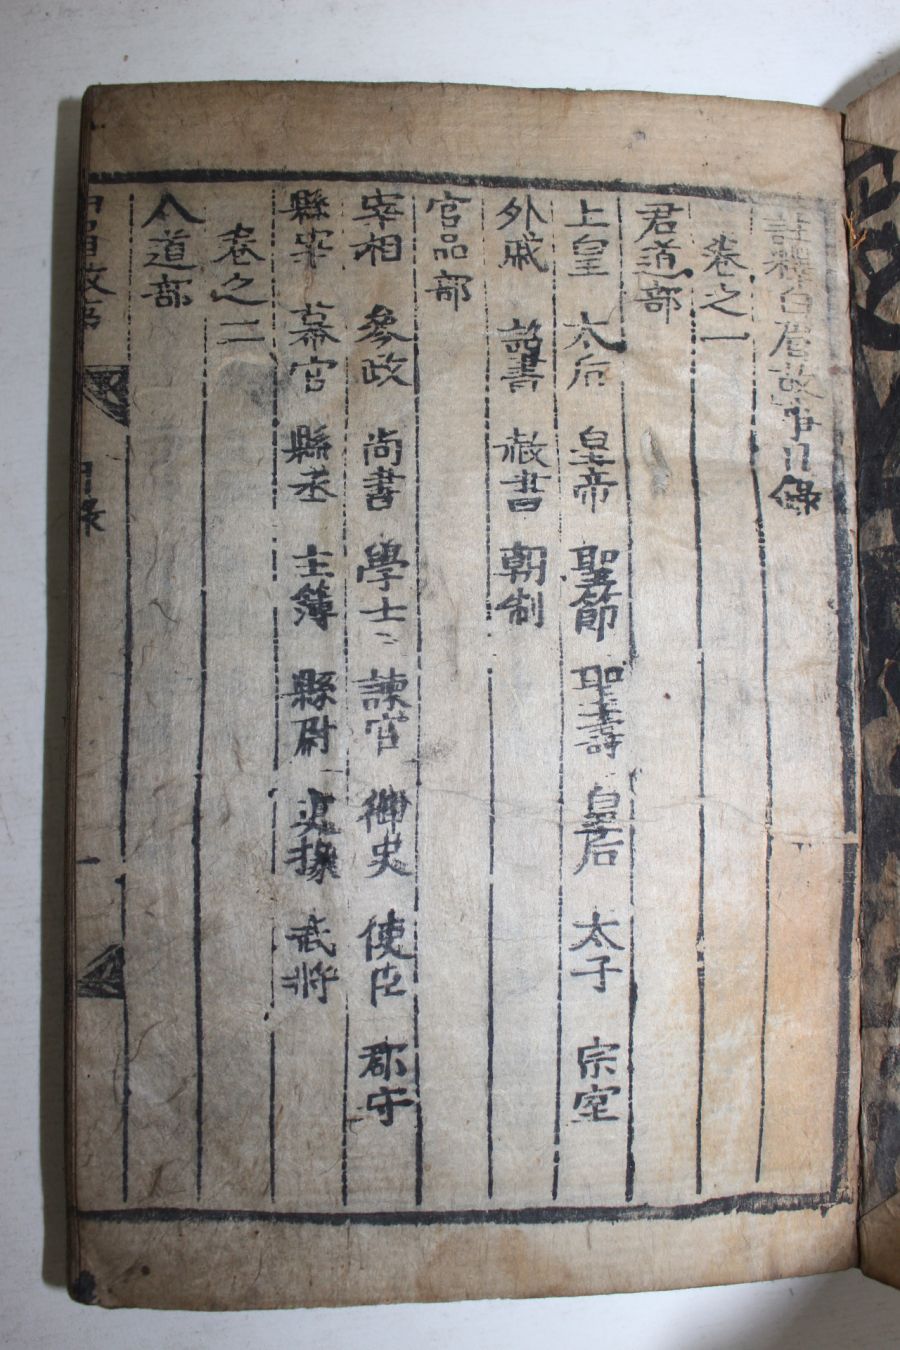 註釋白眉故事目錄
卷之一
君道部
上皇 太后 皇帝 聖節 聖壽 皇后 太子 宗室
外戚 詔書 赦書 朝制
官品部
宰相 參政 尚書 學士 諫官 御史 使臣 郡守
縣宰 幕官 縣丞 主簿 縣尉 武將
卷之二
人道部
目錄 一